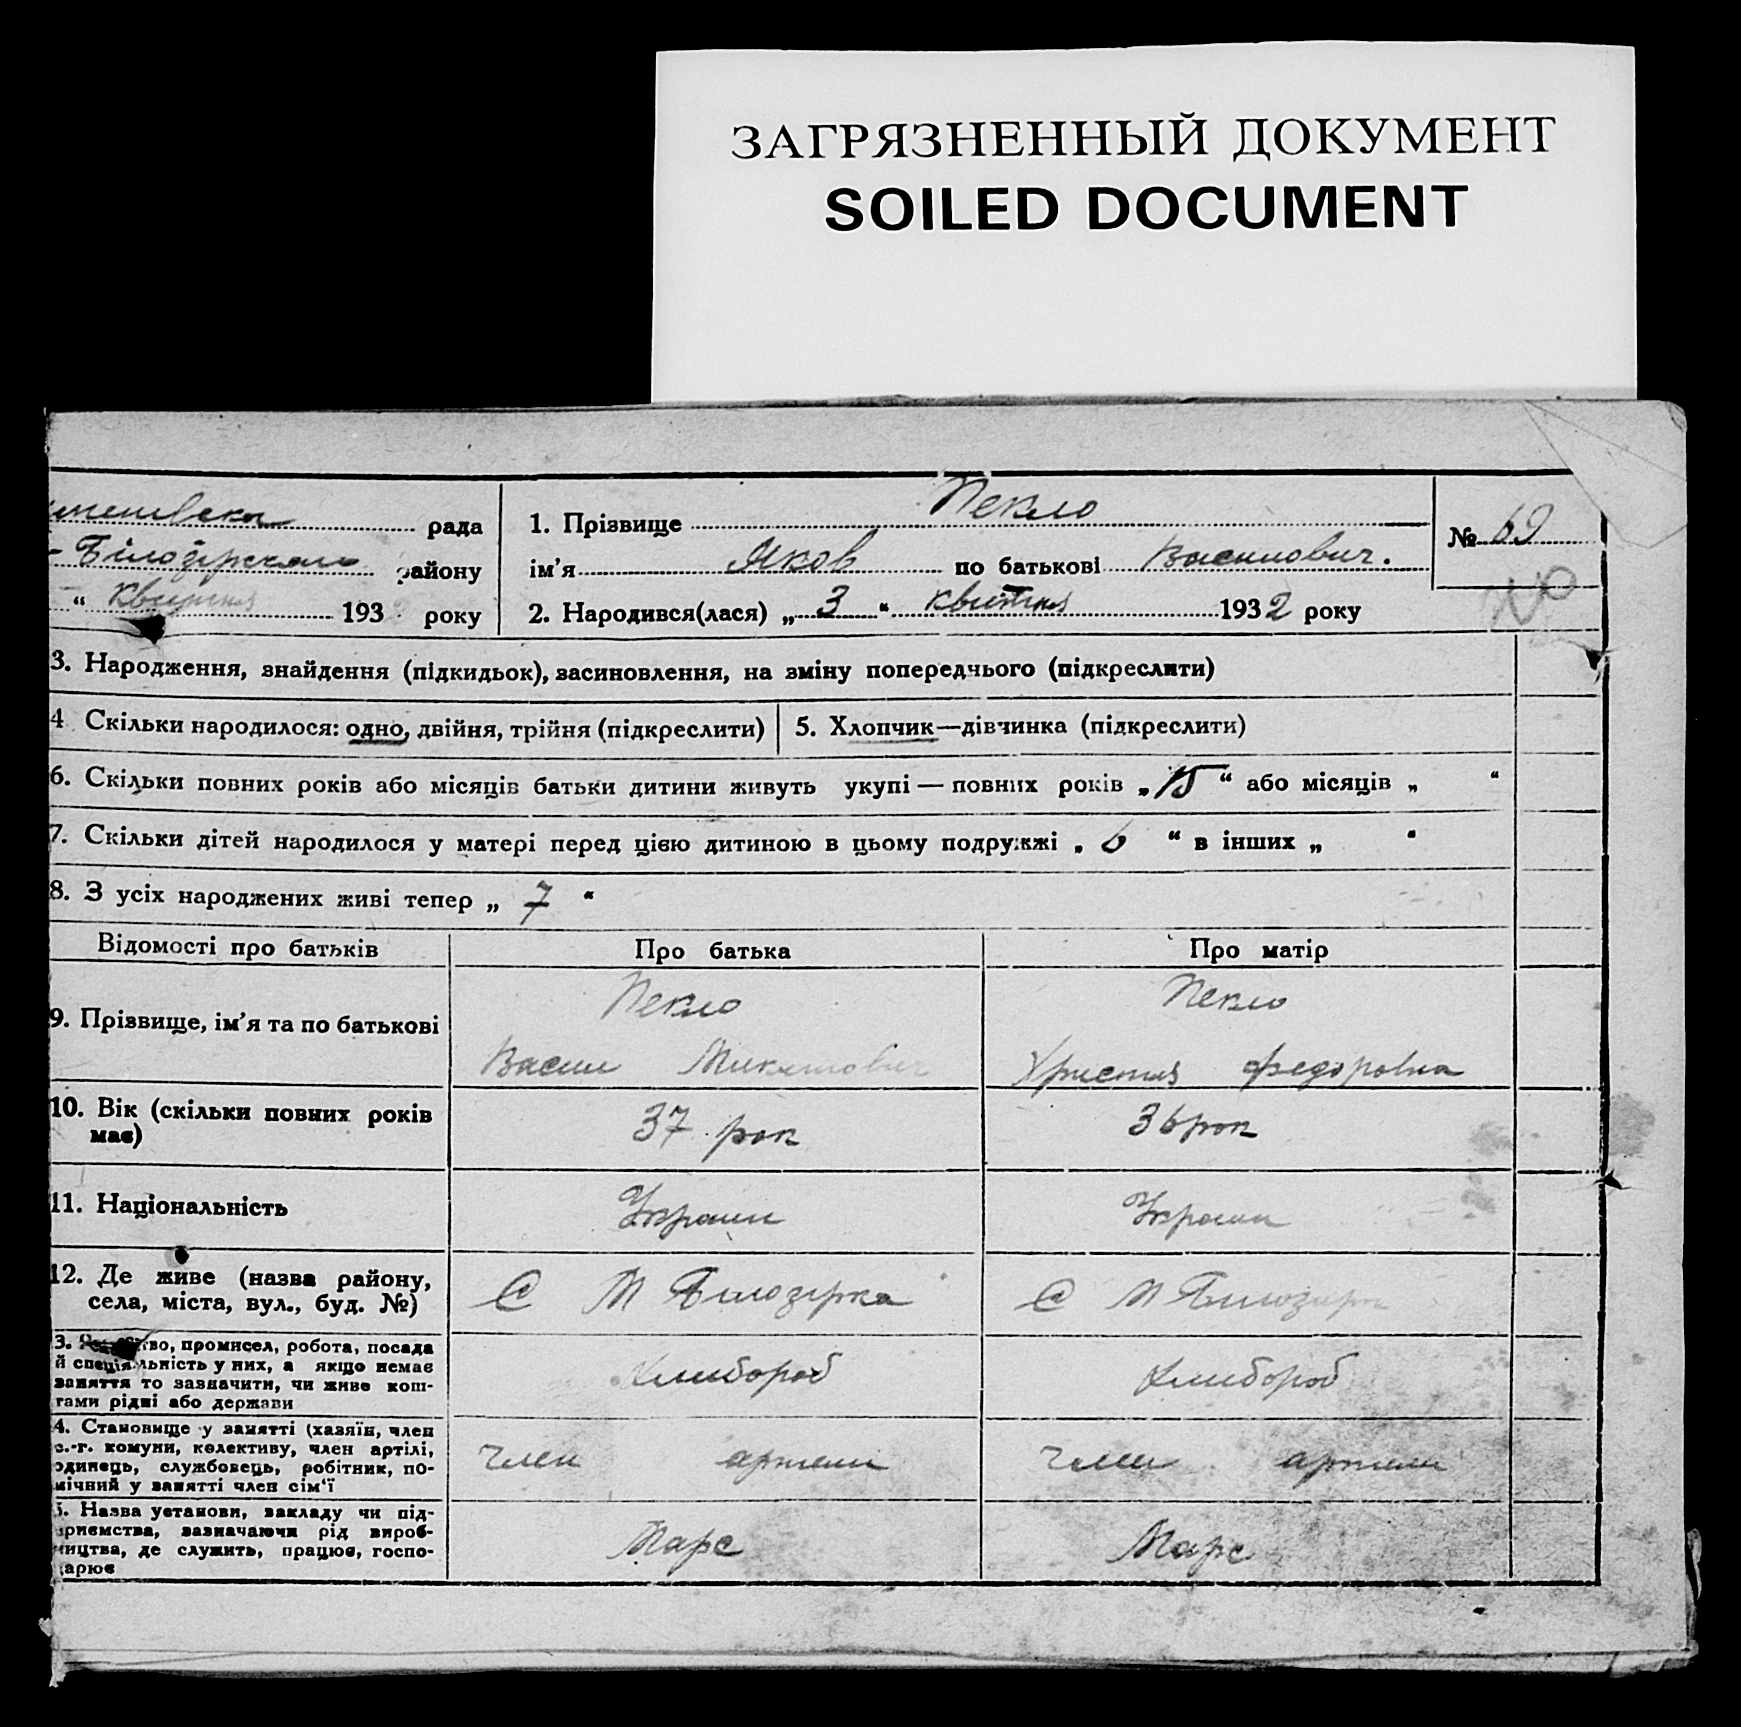 ЗАГРЯЗНЕННЫЙ ДОКУМЕНТ
SOILED DOCUMENT
рада
Білозірського району
“ квітня 193 року
1. Прізвище Пекло
ім’я Яков по батькові Василович.
2. Народився(лася) „ 3 “ квітня 1932 року
№ 69
3. Народження, знайдення (підкидьок), засиновлення, на зміну попереднього (підкреслити)
4 Скільки народилося: одно, двійня, трійня (підкреслити)
5. Хлопчик—дівчинка (підкреслити)
6. Скільки повних років або місяців батьки дитини живуть укупі — повних років „ 15 “ або місяців „ “
7. Скільки дітей народилося у матері перед цією дитиною в цьому подружжі „ 6 “ в інших „ “
8. З усіх народжених живі тепер „ 7 “
Відомості про батьків Про батька Про матір
9. Прізвище, ім’я та по батькові
Пекло
Васил
Пекло
Христя Федоровна
10. Вік (скільки повних років
має)
37 рок
36 рок
11. Національність
Україн
Україн
12. Де живе (назва району,
села, міста, вул., буд. №)
С М Білозірка
С М
3. во, промисел, робота, посада
й спеціяльність у них, а якщо немає
заняття то зазначити, чи живе кош-
тами рідні або держави
Хлибороб
Хлибороб
4. Становище у занятті (хазяїн, член
с.-г. комуни, колективу, член артілі,
одинець, службовець, робітник, по-
мічний у занятті член сім‘ї
член артели
член артели
5. Назва установи, закладу чи під-
приємства, зазначаючи рід вироб-
ництва, де служить, працює, госпо-
дарює
Марс
Марс